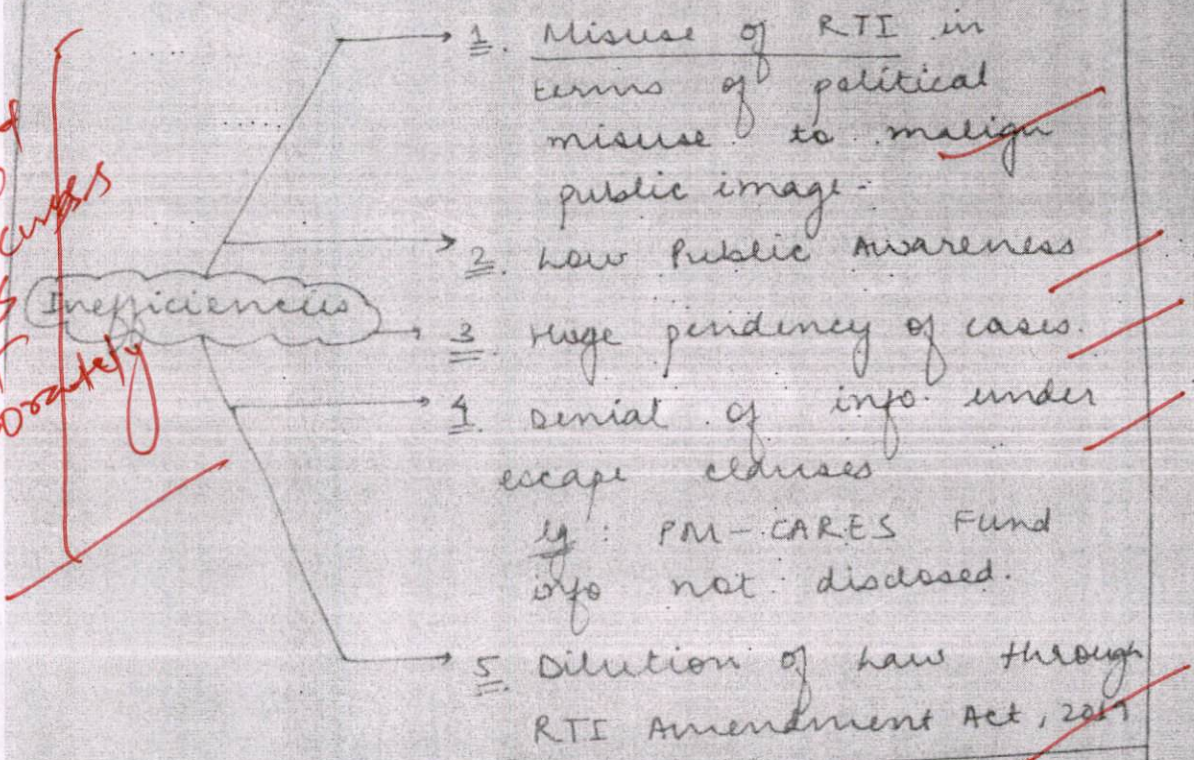 1. Misuse of RTI in
terms of political
misuse to malign
public image-
2. Low Public Awareness
Inefficiencies
3. Huge pendency of cases.
4. Denial of info under
escape clauses
eg: PM-CARES Fund
info not disclosed.
5. Dilution of Law through
RTI Amendment Act, 2019